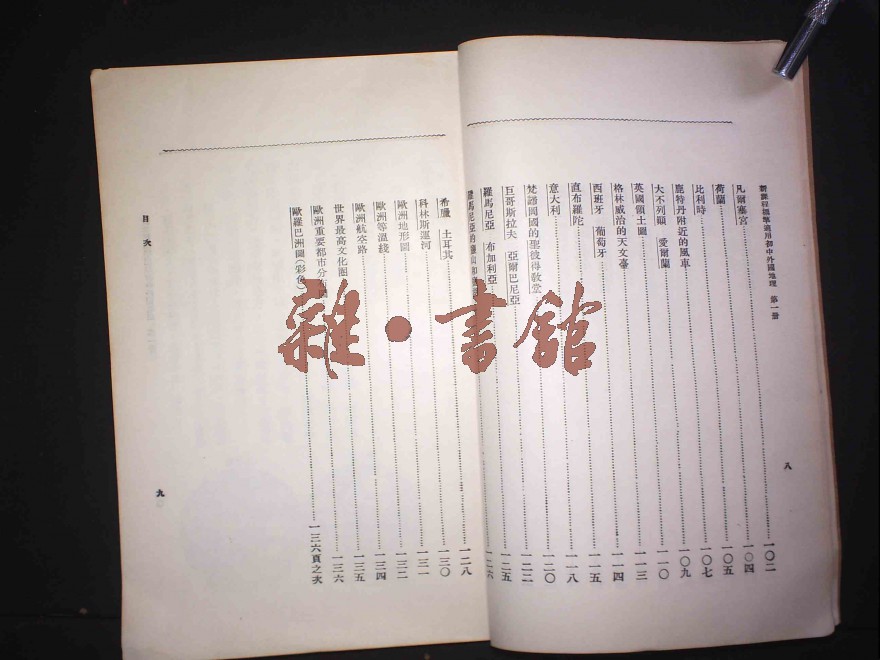 新課程標準適用初中外國地理 第一册
八
凡爾塞宮……一〇二
荷蘭……一〇四
比利時……一〇五
鹿特丹附近的風車……一〇七
大不列顚 愛爾蘭……一〇九
英國領土圖……一一〇
格林威治的天文臺……一一三
西班牙 葡萄牙……一一四
直布羅陀……一一五
意大利……一一八
梵諦岡國的聖彼得敎堂……一二〇
巨哥斯拉夫 亞爾巴尼亞……一二二
羅馬尼亞 布加利亞……一二五
羅馬尼亞的 山和……一二六
希臘 土耳其……一二八
科林斯運河……一三〇
歐洲地形圖……一三一
歐洲等溫綫……一三二
歐洲航空路……一三四
世界最高文化圈……一三五
歐洲重要都市分布圖……一三六
歐羅巴洲圖(彩色)……一三六頁之次
目次
九
雜·書館